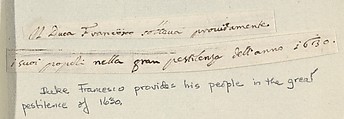 Il Duca Francesco solleva providamente
i suoi popoli nella gran pestilenza dell'anno 1630.
Duke Francesco provides his people in the great
pestilence of 1630.